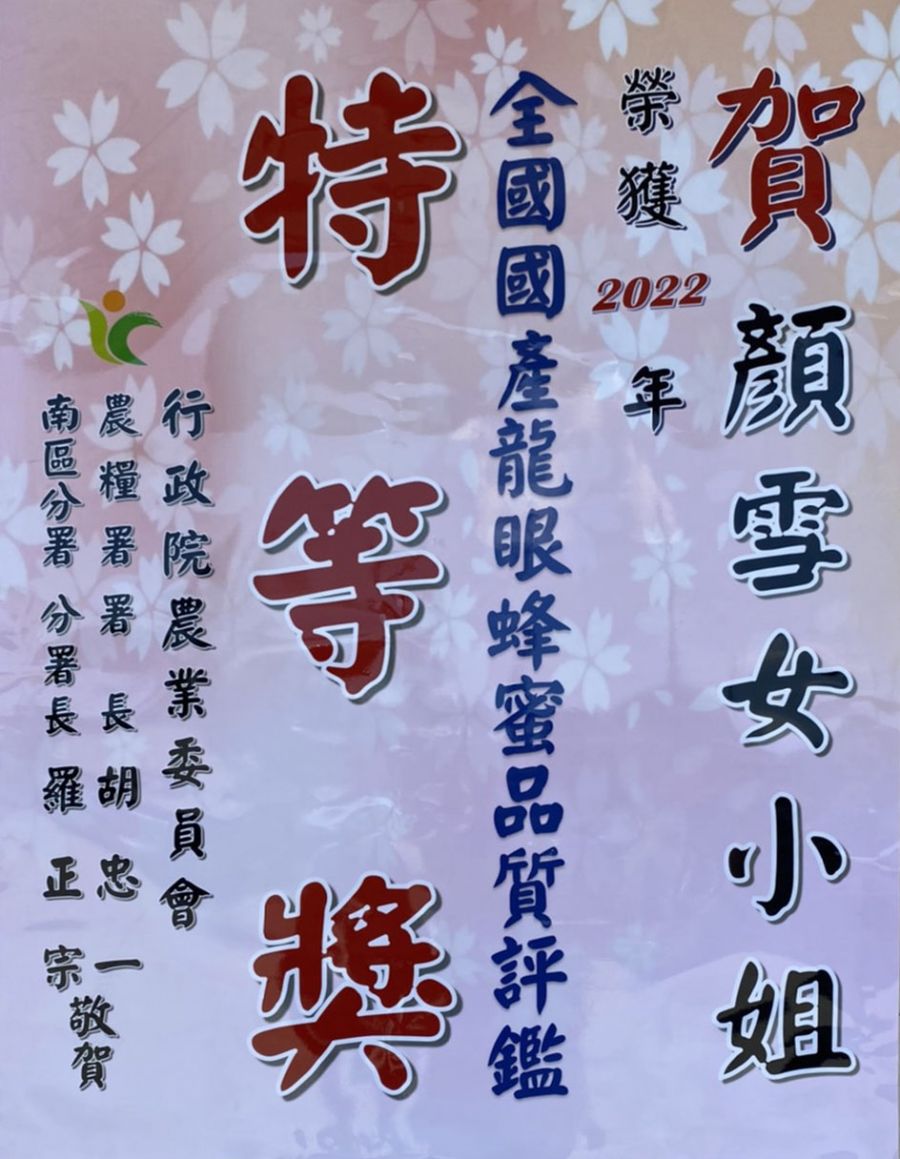 賀顏雪女小姐
榮獲2022年
全國國產龍眼蜂蜜品質評鑑
特等獎
行政院農業委員會
農糧署署長胡忠一
南區分署分署長羅正宗
敬賀